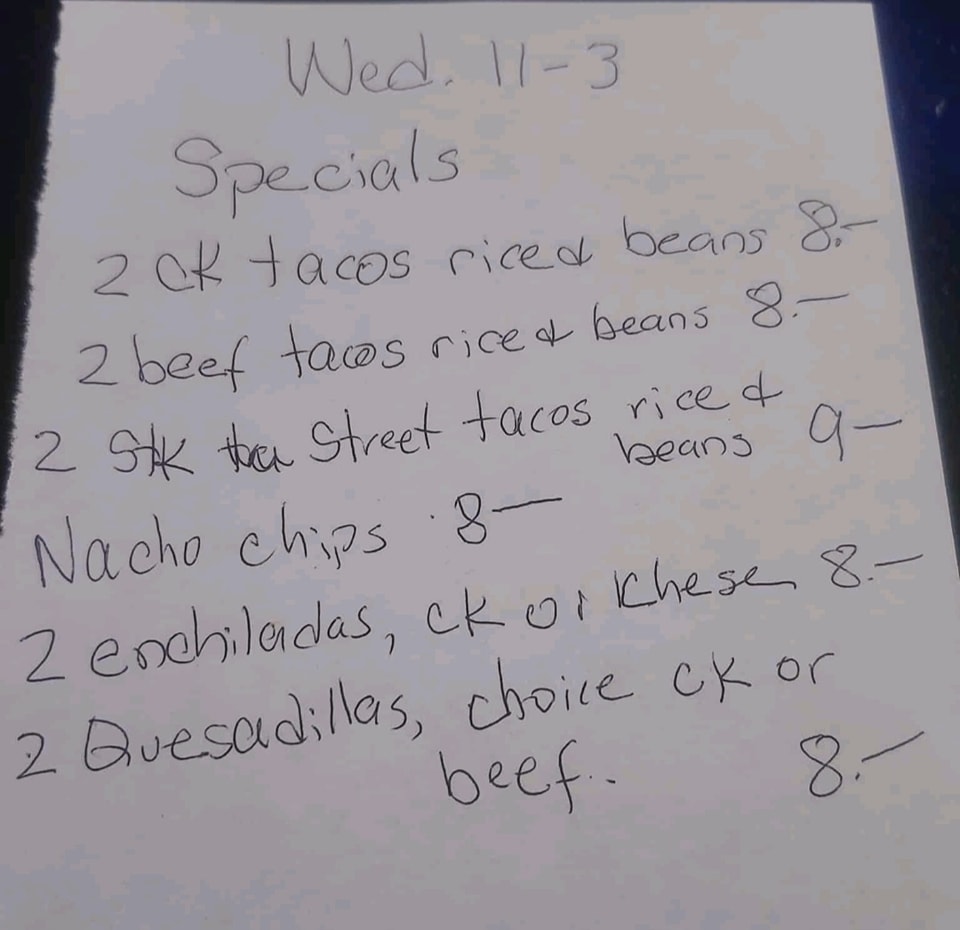 Wed. 11-3
Specials
2 CK tacos rice & beans 8.-
2 beef tacos rice & beans 8.-
2 Stk Street tacos rice & beans 9-
Nacho chips 8-
2 enchiladas, ck or Khese 8.-
2 Quesadillas, choice ck or
beef.. 8.-